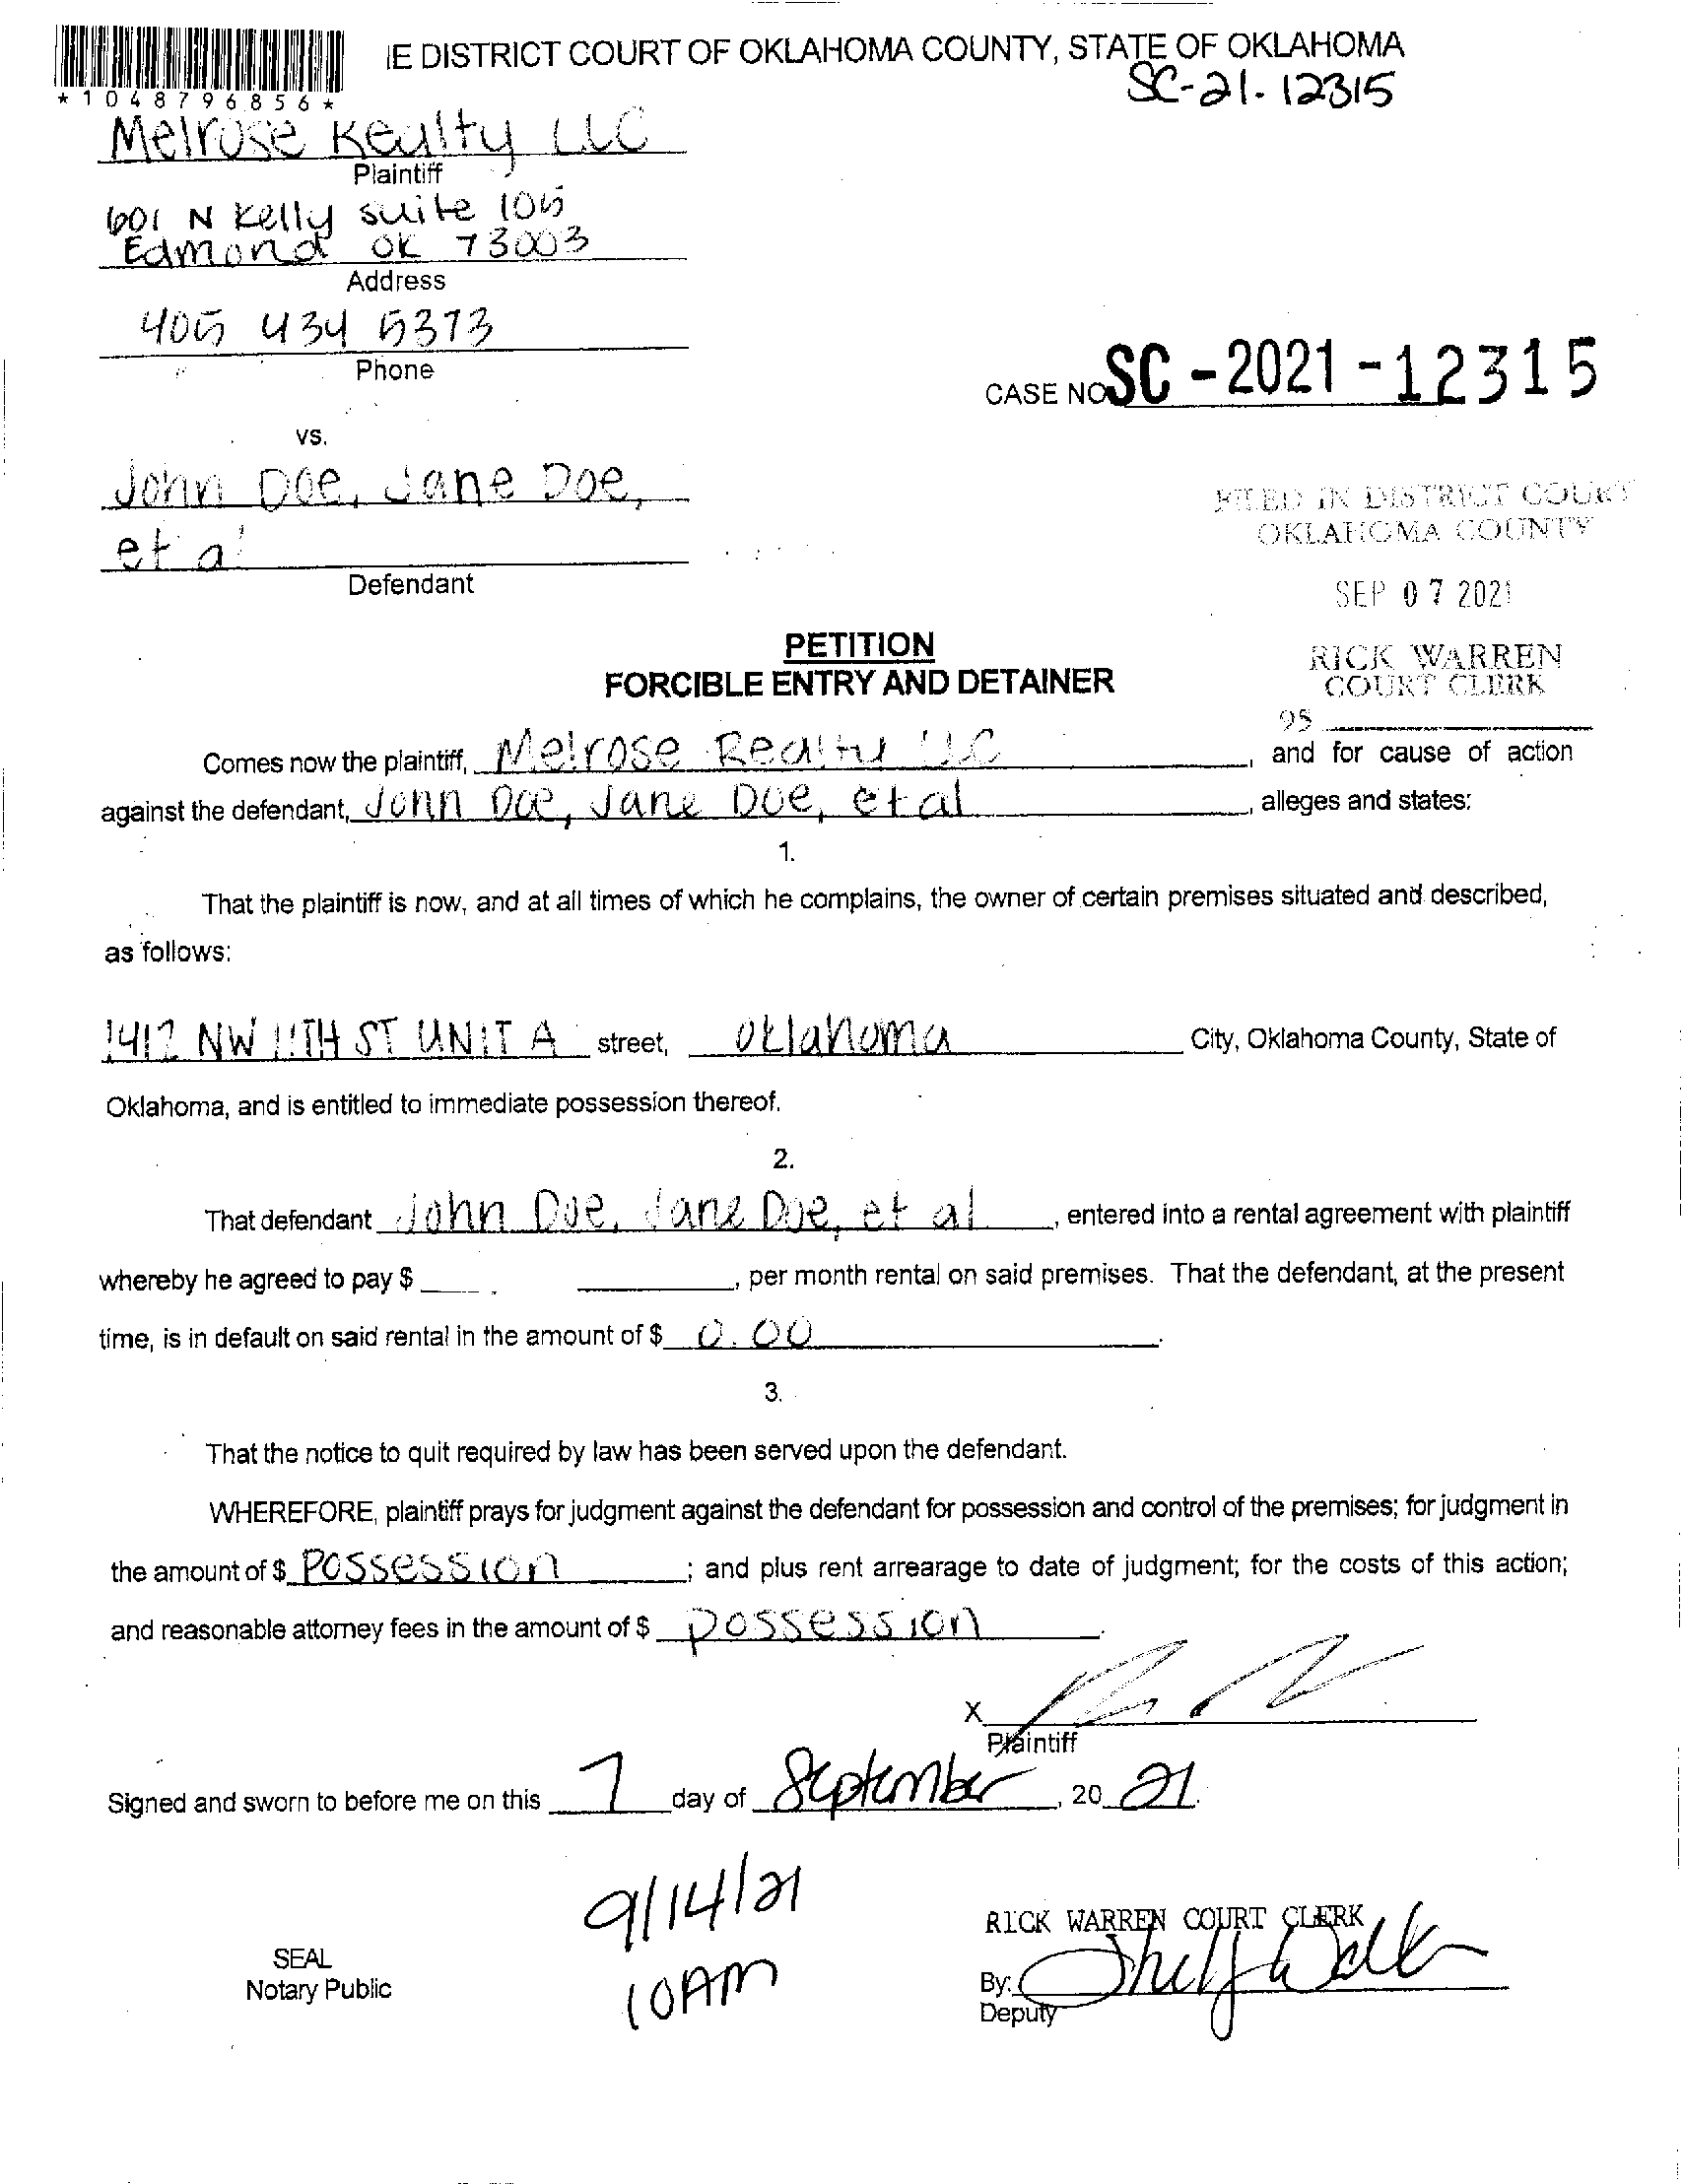 IE DISTRICT COURT OF OKLAHOMA COUNTY, STATE OF OKLAHOMA
*1048796856*
SC-21-12315
Melrose Realty LLC
Plaintiff
601 N Kelly suite 105
Edmond OK 73003
Address
405 434 5373
Phone
CASE NO SC-2021-12315
vs.
John Doe, Jane Doe,
et al
Defendant
FILED IN DISTRICT COURT
OKLAHOMA COUNTY
SEP 07 2021
RICK WARREN
COURT CLERK
95
PETITION
FORCIBLE ENTRY AND DETAINER
Comes now the plaintiff, Melrose Realty LLC, and for cause of action
against the defendant, John Doe, Jane Doe, et al, alleges and states:
1.
That the plaintiff is now, and at all times of which he complains, the owner of certain premises situated and described,
as follows:
1412 NW 11TH ST UNIT A street, Oklahoma City, Oklahoma County, State of
Oklahoma, and is entitled to immediate possession thereof.
2.
That defendant John Doe, Jane Doe, et al, entered into a rental agreement with plaintiff
whereby he agreed to pay $ , per month rental on said premises. That the defendant, at the present
time, is in default on said rental in the amount of $ 0.00.
3.
That the notice to quit required by law has been served upon the defendant.
WHEREFORE, plaintiff prays for judgment against the defendant for possession and control of the premises; for judgment in
the amount of $ Possession; and plus rent arrearage to date of judgment; for the costs of this action;
and reasonable attorney fees in the amount of $ possession.
X
Plaintiff
Signed and sworn to before me on this 7 day of September, 20 21.
9/14/21
10AM
SEAL
Notary Public
RICK WARREN COURT CLERK
By:
Deputy